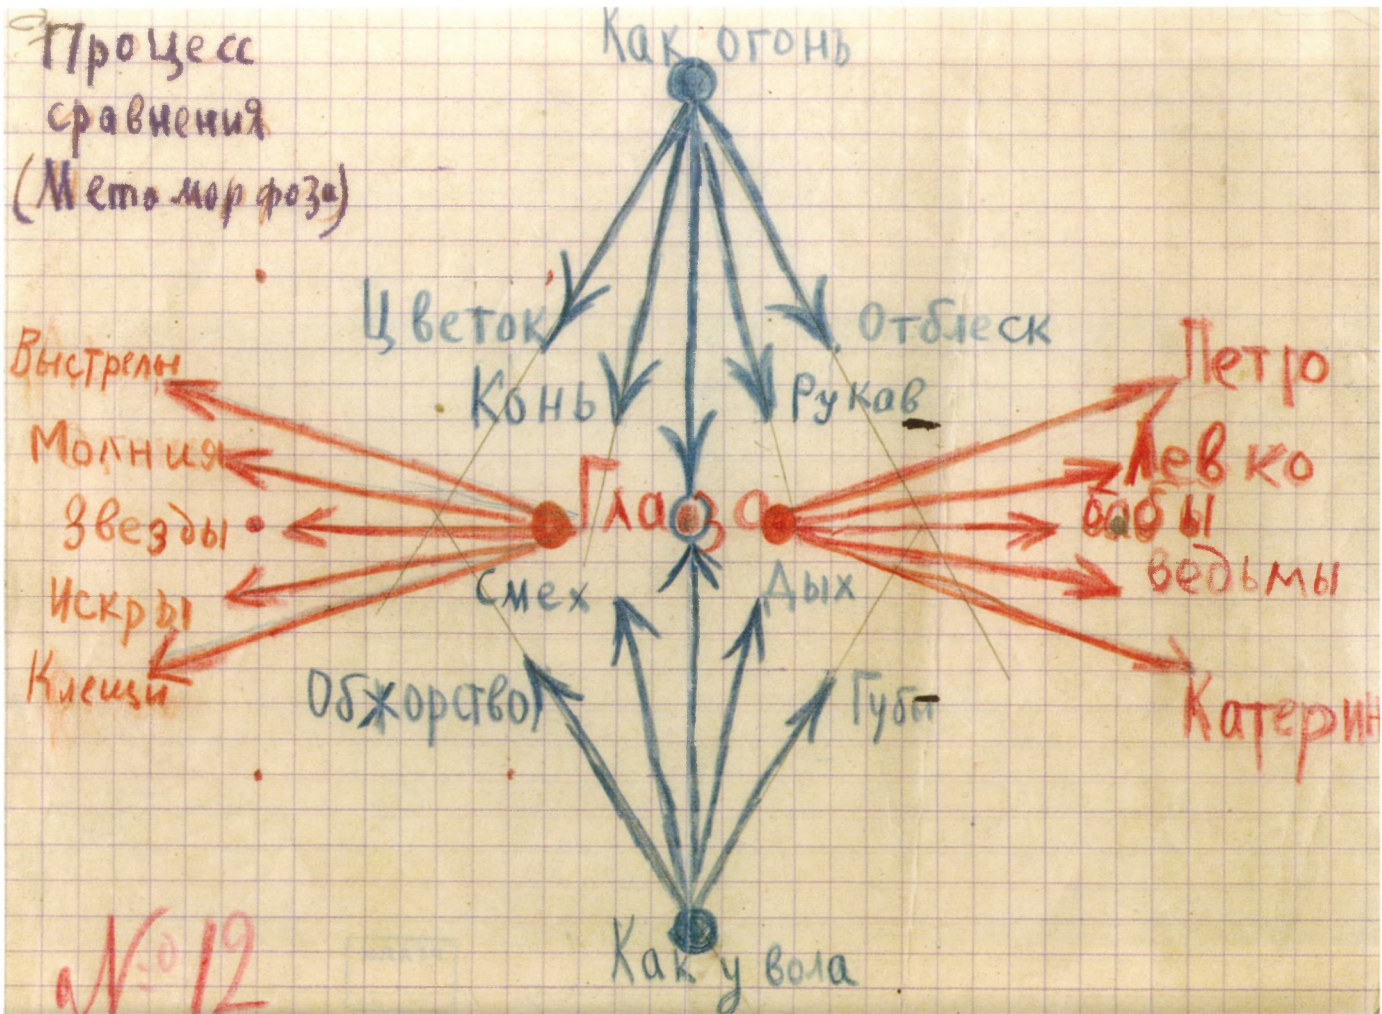 Процесс
сравнения
(Метоморфоза)
Как огонь
Цветок
Отблеск
Конь
Рукав
Выстрелы
Молния
Звезды
Искры
Клещи
Глаза
Петро
Левко
бабы
ведьмы
Катерин
смех
Дых
Обжорство
Губы
Как у вола
№12